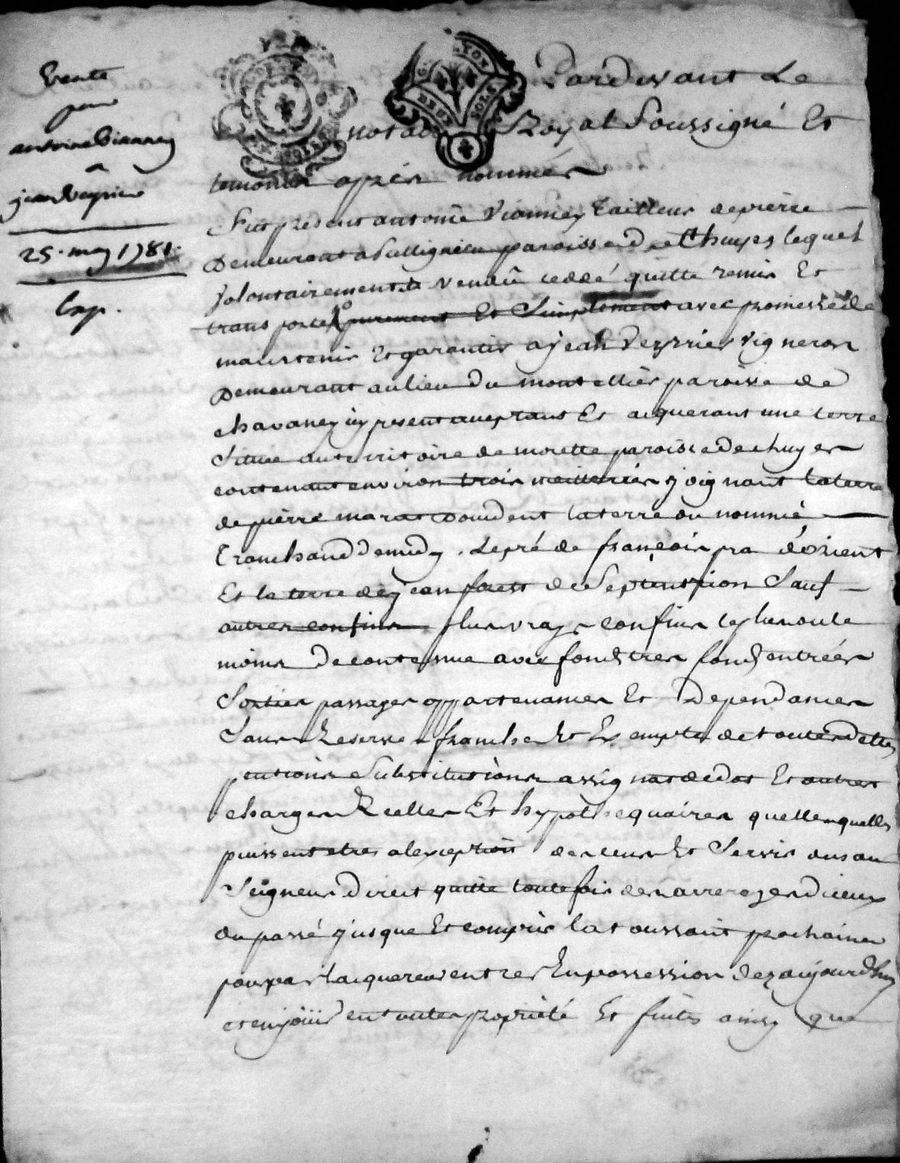 Vente
par
antoine Vianney
a
jean Veyrier
25. may 1781.
Exp.
LYON
DEUX SOLS
Pardevant Le
notaire Royal Soussigné Et
temoins apprés nommés
Fut present antoine Vianney Tailleur de pierre
Demeurant a Sullignieu paroisse de Chuyes lequel
Volontairement a vendû ceddé quitte remis Et
transporté purement Et Simplement avec promesse de
maintenir Et garantir a jean Veyrier Vigneron
Demeurant au lieu du montellier paroisse de
chavaney icy present acceptant Et acquerant une terre
Située au territoire de morette paroisse de chuyes
contenant environ trois meiterées joignant la terre
de pierre maras doccident la terre du nommé
Tranchand de midy, le pré de françois pra d'orient
Et la terre de jean de Septentrion Sauf
autres confins plus vrays confins le plus ou le
moins de contenue avec fonds tres fonds entrées
Sorties passages appartenances Et Dependances
Sans Reserve franche Et Exempte de toutes dettes
pentions Substitutions assignat de dot Et autres
charges Reelles Et hypothequaires quelles quelles
puissent etres a l'exception des cens Et Servis dus au
Seigneur Direct quitte toutefois des arrerages d'iceux
du passé jusque Et compris la toussaint prochaine
pour par l'acquereur entrer En possession dez aujourd'huy
et en jouir en toutes proprieté Et fruits ainsy que